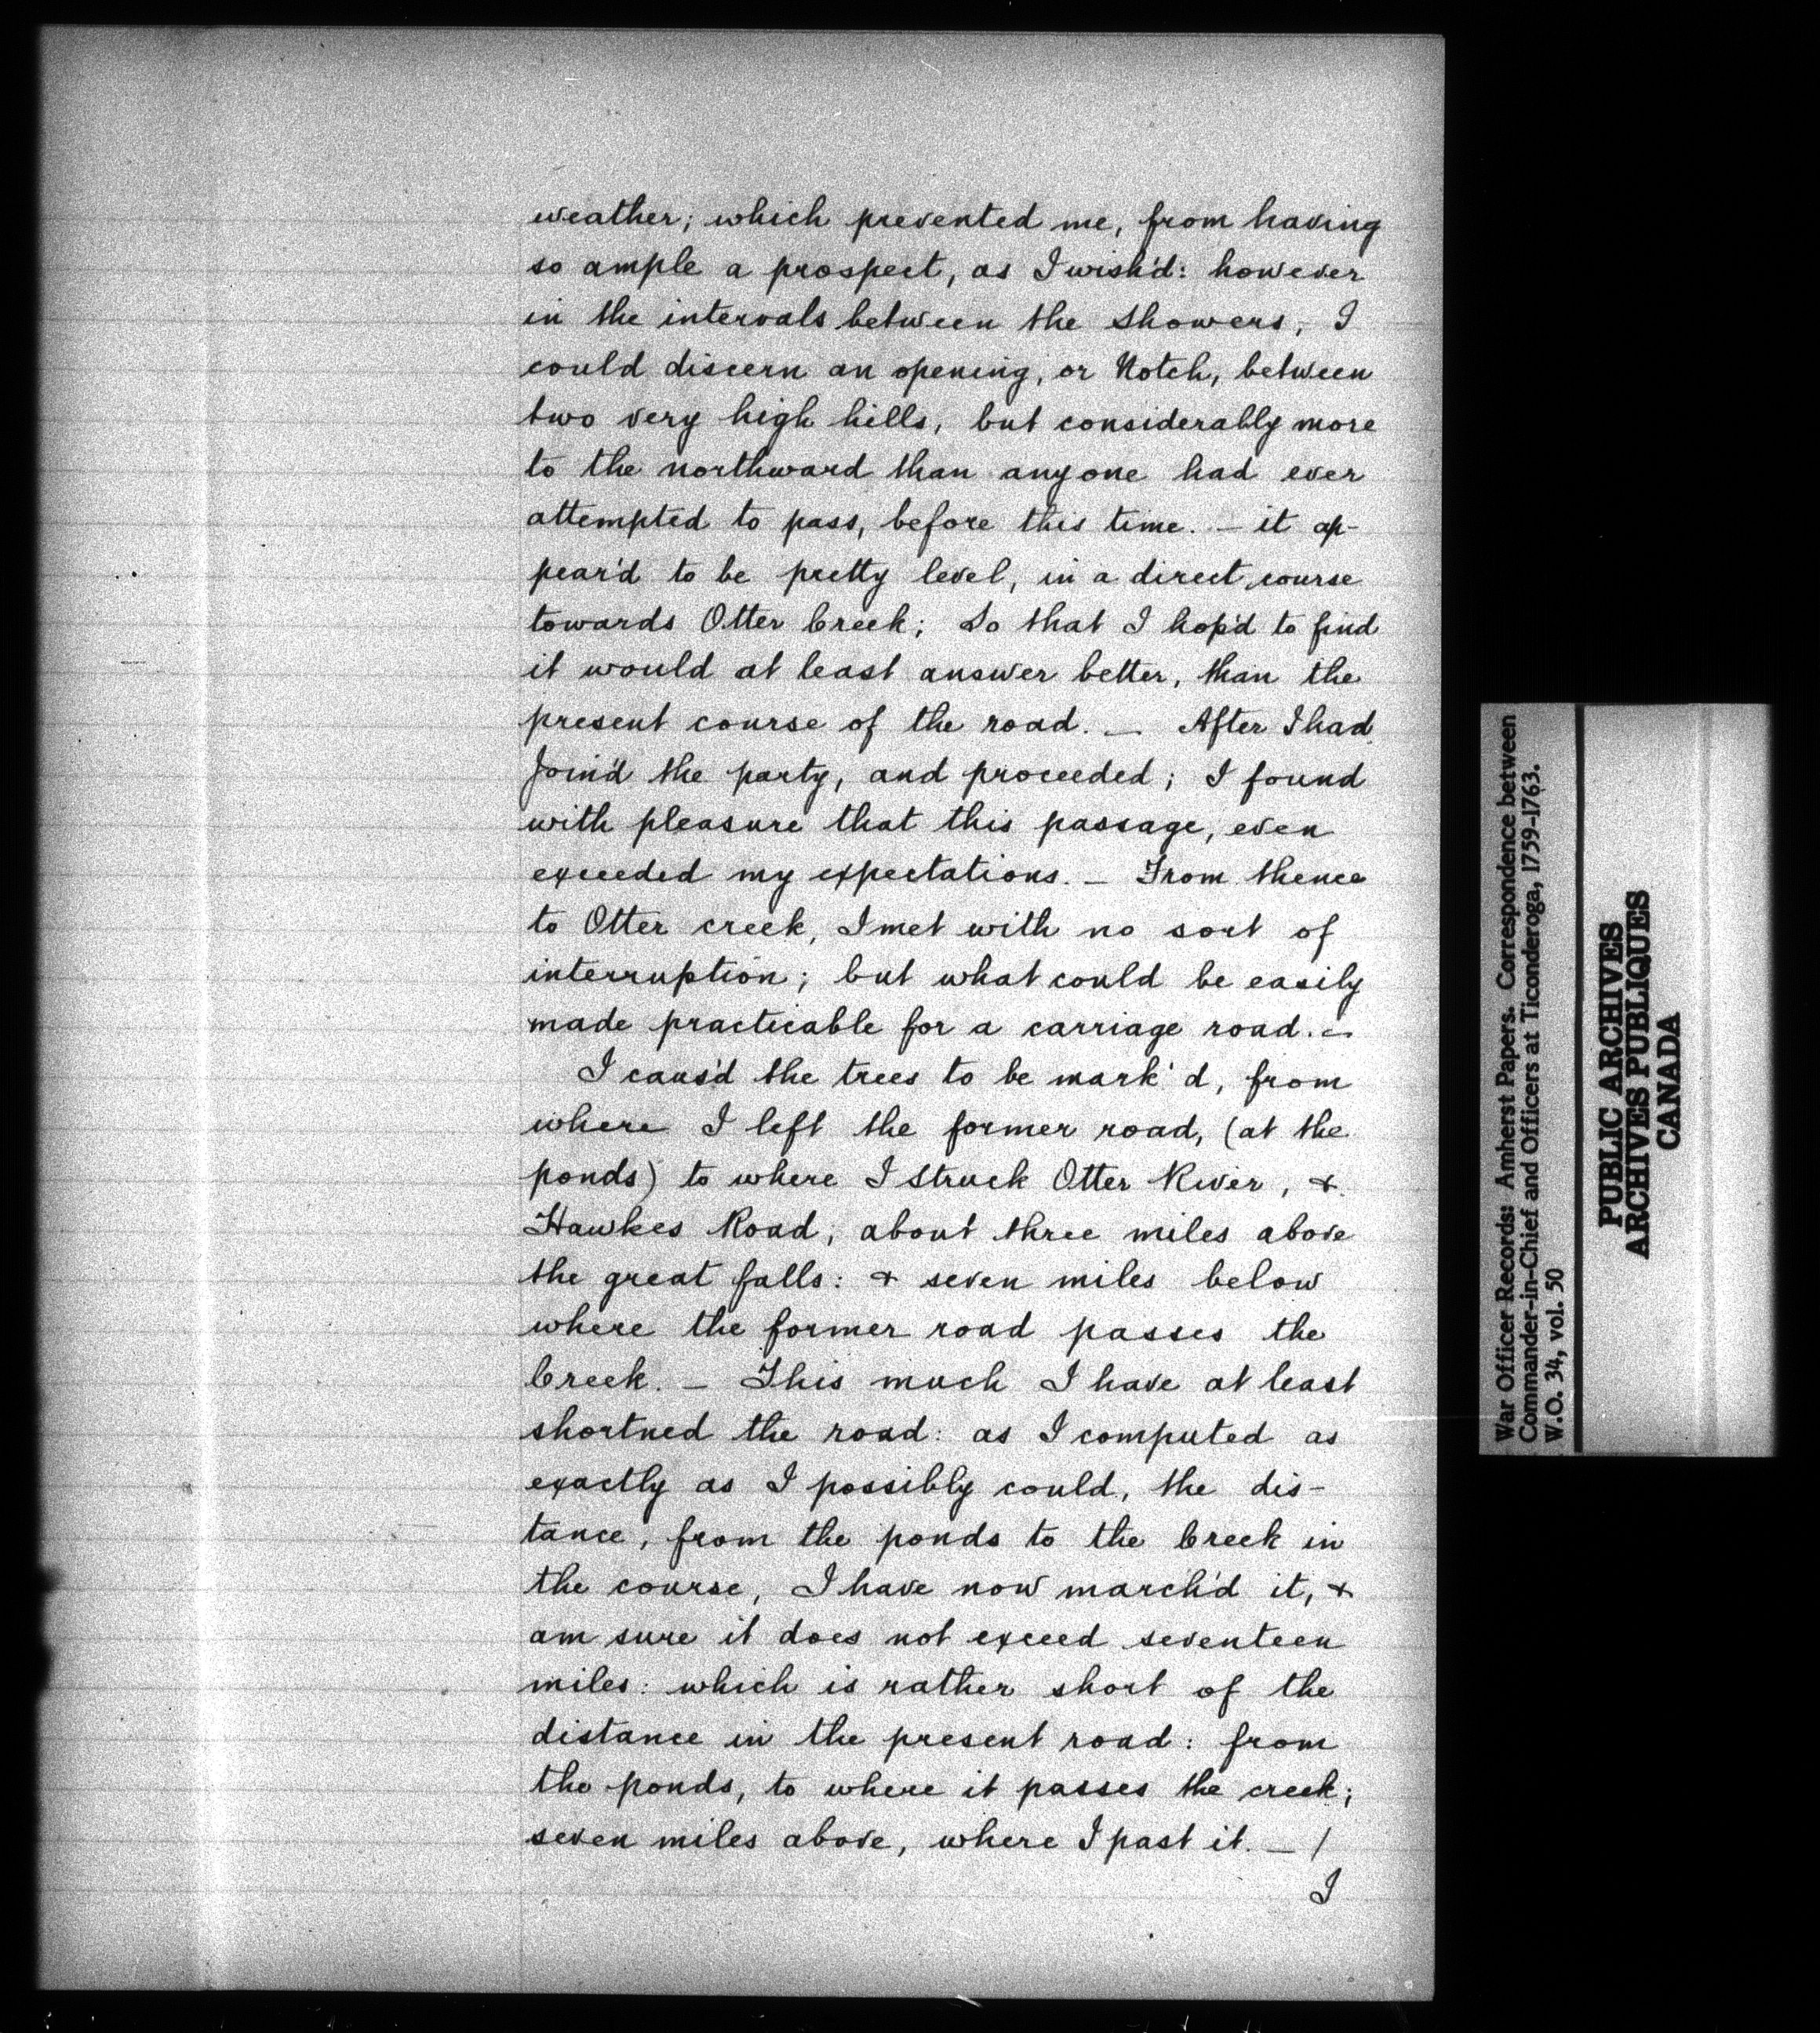 weather; which prevented me, from having
so ample a prospect, as I wish'd: however
in the intervals between the Showers, I
could discern an opening, or Notch, between
two very high hills, but considerably more
to the northward than anyone had ever
attempted to pass, before this time. — it ap-
pear'd to be pretty level, in a direct course
towards Otter Creek; So that I hop'd to find
it would at least answer better, than the
present course of the road. — After I had
Join'd the party, and proceeded; I found
with pleasure that this passage, even
exceeded my expectations. — From thence
to Otter creek, I met with no sort of
interruption; but what could be easily
made practicable for a carriage road. —
I caus'd the trees to be mark'd, from
where I left the former road, (at the
ponds) to where I Struck Otter River, &
Hawkes Road; about three miles above
the great falls: & seven miles below
where the former road passes the
Creek. — This much I have at least
shortned the road: as I computed as
exactly as I possibly could, the dis-
tance, from the ponds to the Creek in
the course, I have now march'd it, &
am sure it does not exceed seventeen
miles: which is rather short of the
distance in the present road: from
the ponds, to where it passes the creek;
seven miles above, where I past it. — /
I
War Officer Records: Amherst Papers. Correspondence between
Commander-in-Chief and Officers at Ticonderoga, 1759-1763.
W.O. 34, vol. 50
PUBLIC ARCHIVES
ARCHIVES PUBLIQUES
CANADA